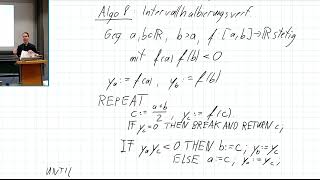 Algo 8: Intervallhalbierungsverf.
Geg a,b∈ℝ, b>a, f: [a,b]→ℝ stetig
mit f(a) f(b) < 0
yₐ := f(a), y_b := f(b)
REPEAT
c := (a+b)/2, y_c := f(c)
IF y_c = 0 THEN BREAK AND RETURN c;
IF yₐy_c < 0 THEN b := c, y_b := y_c
ELSE a := c, yₐ := y_c;
UNTIL